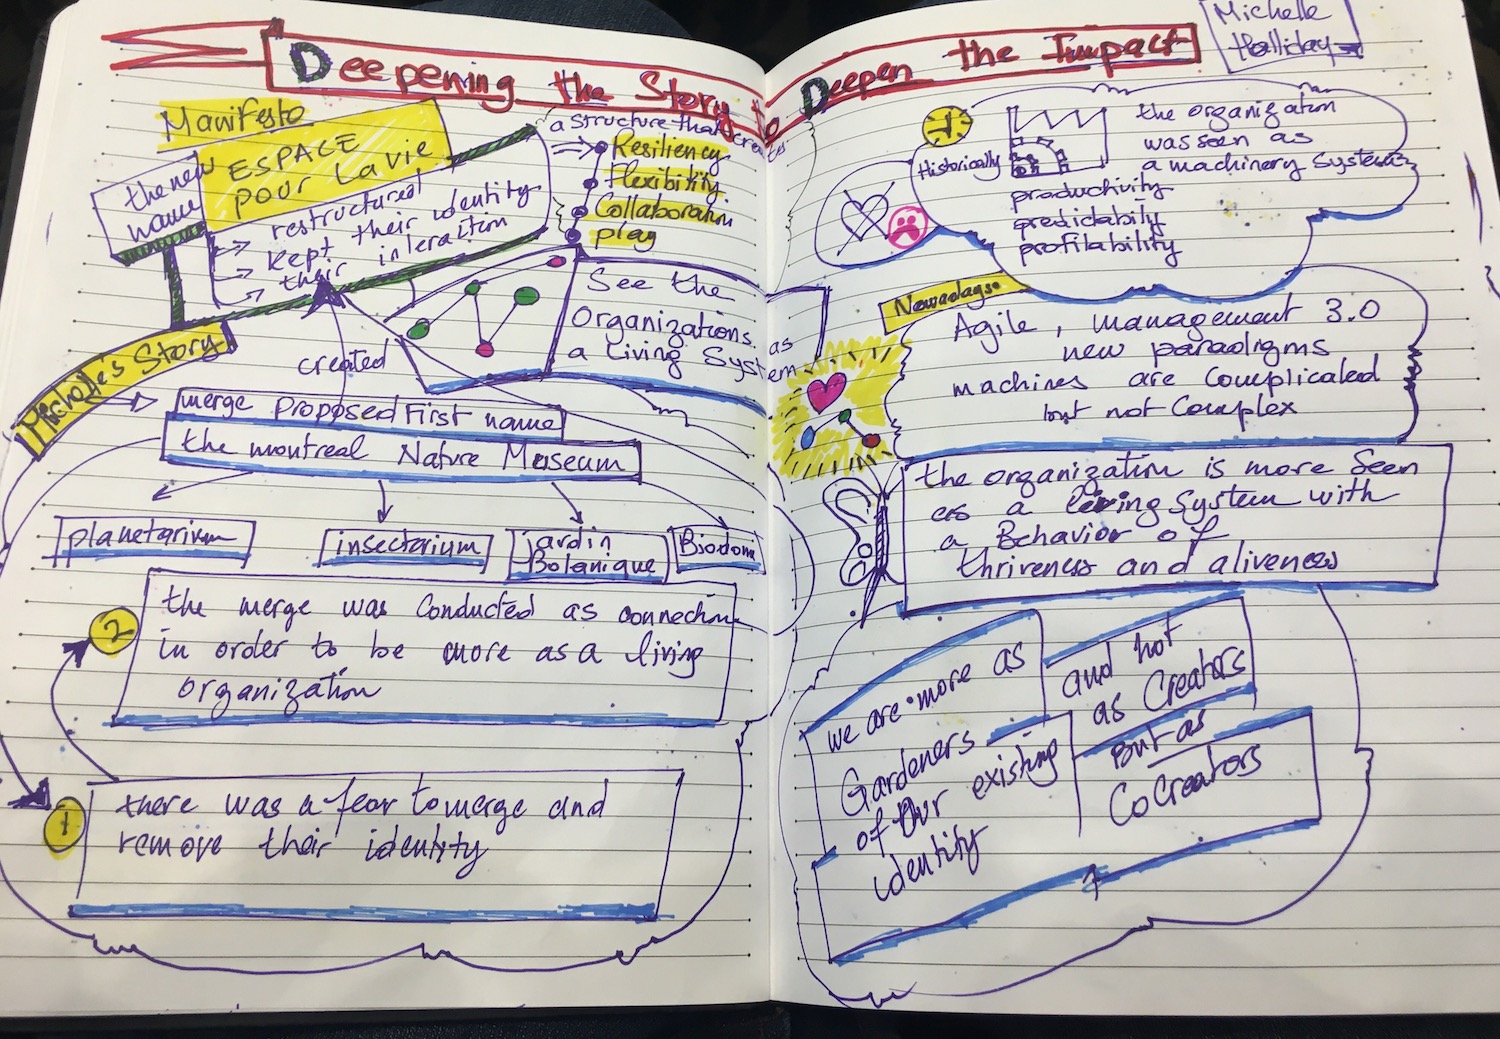 Deepening the Story to Deepen the Impact
Michelle
Holliday
Manifesto
the new
name
ESPACE
pour La vie
restructured
kept their identity
their interaction
a structure that creates
Resiliency
flexibility
Collaboration
play
See the
Organizations as
a living System
Michelle's Story
created
merge proposed First name
the montreal Nature Museum
planetarium
insectarium
jardin
Botanique
Biodom
2
the merge was Conducted as connection
in order to be more as a living
organization
1
there was a fear to merge and
remove their identity
1
Historically
the organization
was seen as
a machinery System
productivity
predictability
profitability
Nowadays
Agile, management 3.0
new paradigms
machines are Complicated
but not Complex
the organization is more Seen
as a living System with
a Behavior of
thriveness and aliveness
we are more as
Gardeners
of our existing
identity
and not
as Creators
But as
CoCreators